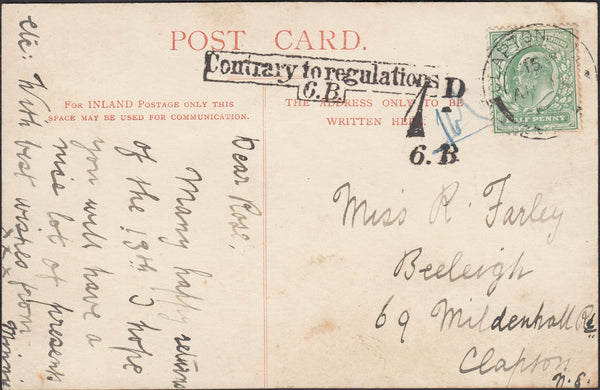 POST CARD.
Contrary to regulations
6.B.
For INLAND Postage only this
space may be used for communication.
THE ADDRESS ONLY TO BE
WRITTEN HERE
1 D
6.B
CLAPTON
15
HALF PENNY
Dear Rose,
Many happy returns
of the 19th I hope
you will have a
nice lot of presents
etc: With best wishes from
x x x Minnie
Miss R. Farley
Beeleigh
69 Mildenhall Rd
Clapton
N.E.